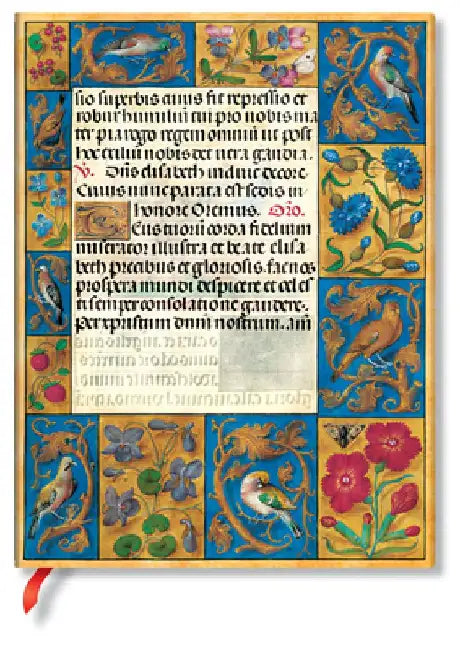 sio superbis cuius fit repressio et
robur humilium cui pro nobis ma
ter pia rogo regem omniu ut post
hoc exiliu nobis det uera gaudia.
elisabeth decore.
Cuius nunc parata est sedis in
honore Oremus. Oro.
Eus tuoru corda fidelium
miserator illustra et beate elisa
beth precibus et gloriosis. fac nos
prospera mundi despicere et celes
ti semper consolatione gaudere.
Per xpristum dnm nostrum. am